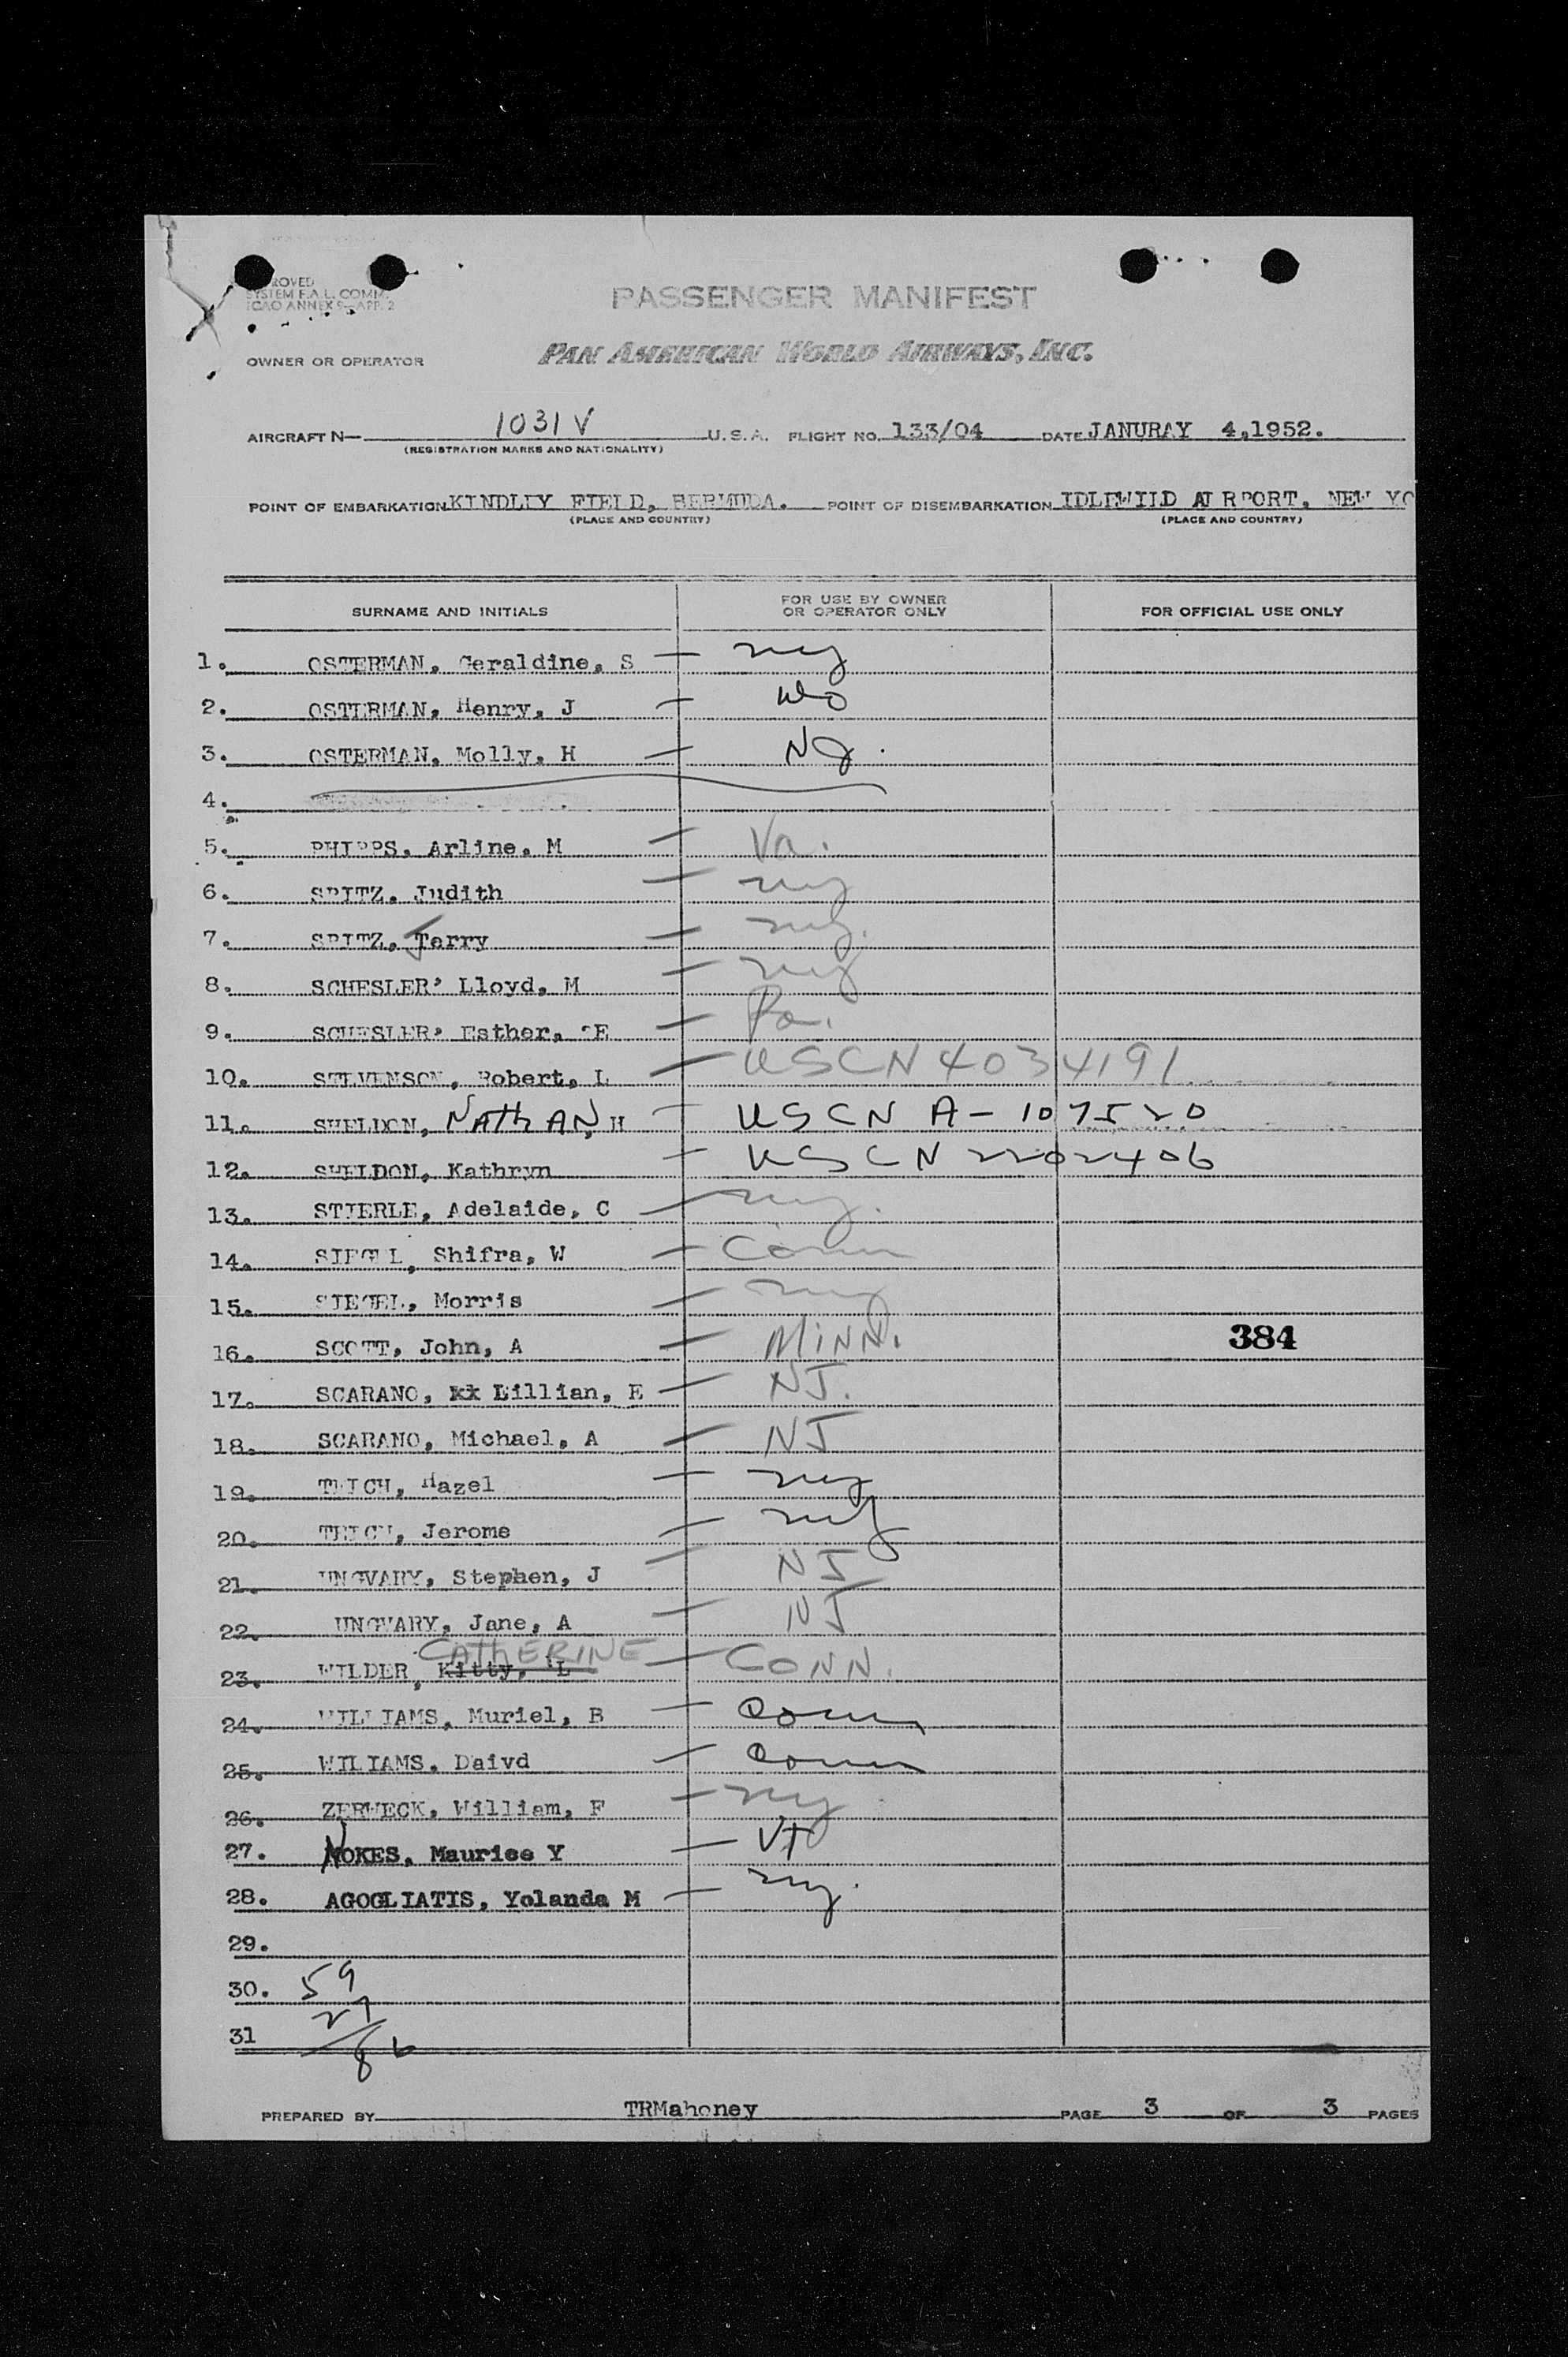 ROVED
SYSTEM F.A.L. COMM.
ICAO ANNEX 9-APP. 2
PASSENGER MANIFEST
OWNER OR OPERATOR PAN AMERICAN WORLD AIRWAYS, INC.
AIRCRAFT N— 1031V U.S.A. FLIGHT NO. 133/04 DATE JANURAY 4,1952.
(REGISTRATION MARKS AND NATIONALITY)
POINT OF EMBARKATION KINDLEY FIELD, BERMUDA. POINT OF DISEMBARKATION IDLEWILD AIRPORT, NEW YO
(PLACE AND COUNTRY) (PLACE AND COUNTRY)
SURNAME AND INITIALS FOR USE BY OWNER OR OPERATOR ONLY FOR OFFICIAL USE ONLY
1. OSTERMAN, Geraldine, S — ny
2. OSTERMAN, Henry, J —
3. OSTERMAN, Molly, H — NJ.
4.
5. PHIPPS, Arline, M — Va.
6. SPITZ, Judith — ny
7. SPITZ, Jerry — ny.
8. SCHESLER' Lloyd, M — ny
9. SCHESLER' Esther, E — Pa.
10. STEVENSON, Robert, L — USCN 4034191
11. SHELDON, NATHAN, H — USCN A-107520
12. SHELDON, Kathryn — USCN 2202406
13. STIERLE, Adelaide, C — ny.
14. SIEGEL, Shifra, W — Conn
15. SIEGEL, Morris — ny
16. SCOTT, John, A — MINN. 384
17. SCARANO, kk Lillian, E — NJ.
18. SCARANO, Michael, A — NJ
19. TEICH, Hazel — ny
20. TEICH, Jerome — ny
21. UNGVARY, Stephen, J — NJ
22. UNGVARY, Jane, A — NJ
CATHERINE
23. WILDER, Kitty, L — CONN.
24. WILLIAMS, Muriel, B — Conn
25. WILIAMS, Daivd — Conn
26. ZERWECK, William, F — ny
27. NOKES, Maurice Y — VT
28. AGOGLIATIS, Yolanda M — ny.
29.
30. 59
27
31 86
PREPARED BY TRMahoney PAGE 3 OF 3 PAGES